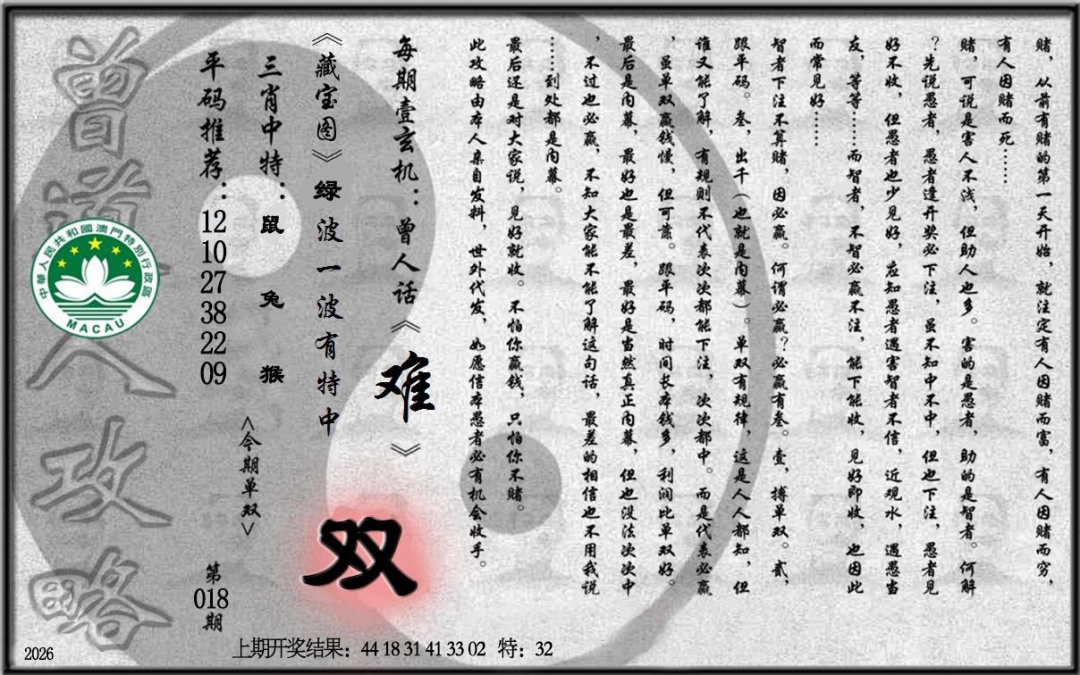 赌，从前有赌的第一天开始，就注定有人因赌而富，有人因赌而穷，
有人因赌而死……
赌，可说是害人不浅，但助人也多。害的是愚者，助的是智者。何解
？先说愚者，愚者逢开奖必下注，虽不知中不中，但也下注，愚者见
好不收，但愚者也少见好，应知愚者遇害智者不信，近观水，遇愚当
友，等等……而智者，不智必赢不注，能下能收，见好即收，也因此
而常见好……
智者下注不算赌，因必赢。何谓必赢？必赢有叁。壹，搏单双。贰，
跟平码。叁，出千（也就是内幕）。单双有规律，这是人人都知，但
谁又能了解，有规则不代表次次都能下注，次次都中。而是代表必赢
，虽单双赢钱慢，但可靠。跟平码，时间长本钱多，利润比单双好。
最后是内幕，最好也是最差，最好是当然真正内幕，但也没法次次中
，不过也必赢，不知大家能不能了解这句话，最差的相信也不用我说
……到处都是内幕。
最后还是对大家说，见好就收。不怕你赢钱，只怕你不赌。
此攻略由本人亲自发料，世外代发，如愿信本愚者必有机会收手。
每期壹玄机：曾人话《难》
《藏宝图》绿波一波有特中
双
三肖中特：鼠 兔 猴
<今期单双>
平码推荐：12 10 27 38 22 09
第018期
曾道人攻略
中華人民共和國澳門特別行政區
MACAU
2026
上期开奖结果：44 18 31 41 33 02 特：32